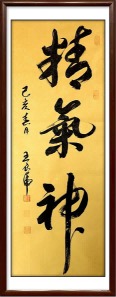 精氣神
己亥春月